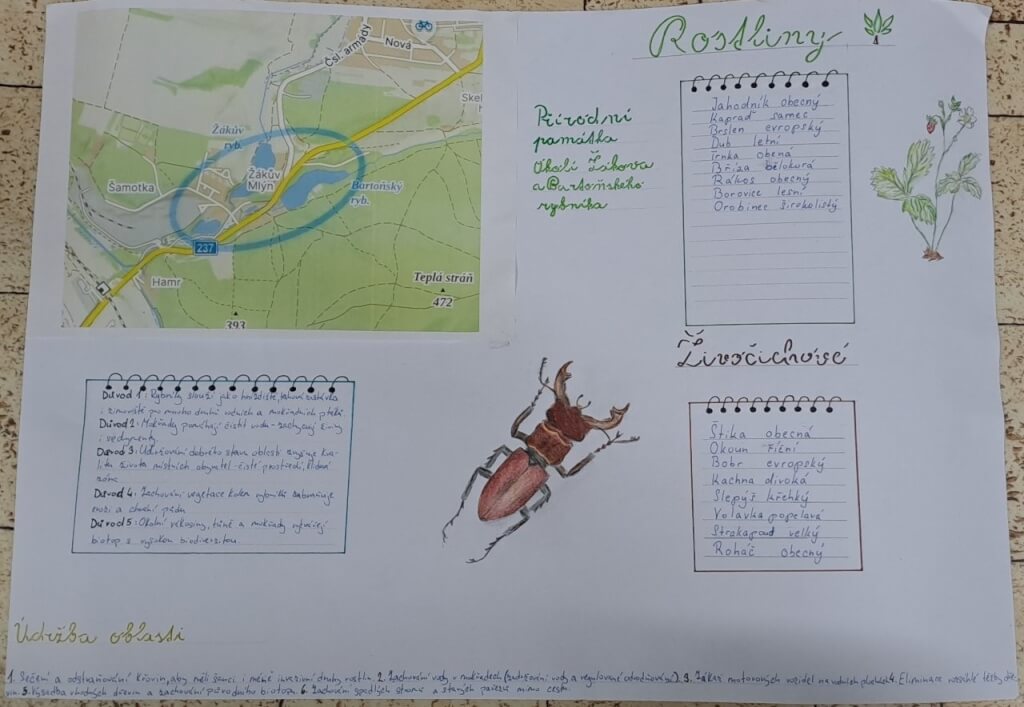 Čsl. armády
Nová
Skel
Žákův
ryb.
Žákův
Mlýn
Šamotka
Bartoňský
ryb.
237
Hamr
Teplá stráň
472
393
Rostliny
Přírodní
památka
Okolí Žákova
a Bartoňského
rybníka
Jahodník obecný
Kapraď samec
Brslen evropský
Dub letní
Trnka obená
Bříza bělokorá
Rákos obecný
Borovice lesní
Orobinec širokolistý
Důvod 1: Rybníky slouží jako hnízdiště, tahová zastávka
i zimoviště pro mnoho druhů vodních a mokřadních ptáků.
Důvod 2: Mokřady pomáhají čistit vodu - zachycují živiny
i sedimenty.
Důvod 3: Udržování dobrého stavu oblasti zvyšuje kva-
litu života místních obyvatel - čisté prostředí, klidná
zóna
Důvod 4: Zachování vegetace kolem rybníků zabraňuje
erozi a chrání půdu
Důvod 5: Okolní rákosiny, tůně a mokřady vytvářejí
biotop s vysokou biodiverzitou.
Živočichové
Štika obecná
Okoun říční
Bobr evropský
Kachna divoká
Slepýš křehký
Volavka popelavá
Strakapoud velký
Roháč obecný
Údržba oblasti
1. Sečení a odstraňování křovin, aby měli šanci i méně invazivní druhy rostlin. 2. Zachování vody v mokřadech (zadržování vody a regulované odvodňování). 3. Zákaz motorových vozidel na vodních plochách 4. Eliminace rozsáhlé těžby dře-
vin. 5. Výsadba vhodných dřevin a zachování původního biotopu 6. Zachování spadlých stromů a starých pařezů mimo cesty.